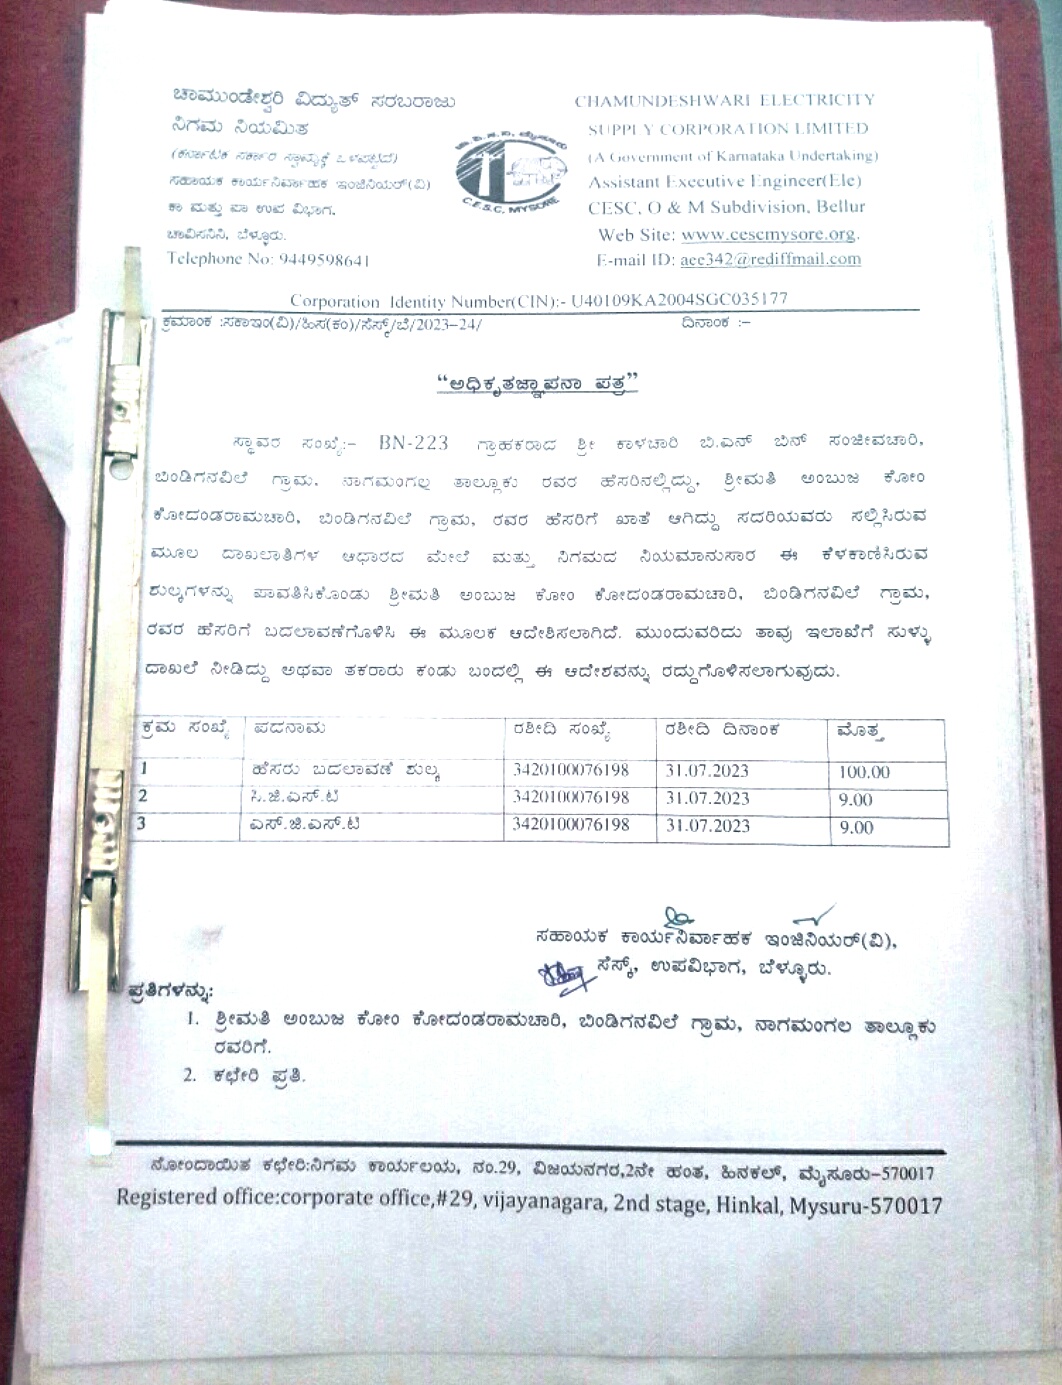 ಚಾಮುಂಡೇಶ್ವರಿ ವಿದ್ಯುತ್ ಸರಬರಾಜು
ನಿಗಮ ನಿಯಮಿತ
(ಕರ್ನಾಟಕ ಸರ್ಕಾರ ಸ್ವಾಮ್ಯಕ್ಕೆ ಒಳಪಟ್ಟಿದೆ)
ಸಹಾಯಕ ಕಾರ್ಯನಿರ್ವಾಹಕ ಇಂಜಿನಿಯರ್(ವಿ)
ಕಾ ಮತ್ತು ಪಾ ಉಪ ವಿಭಾಗ.
ಚಾವಿಸನಿನಿ, ಬೆಳ್ಳೂರು.
Telephone No: 9449598641
C.E.S.C, MYSORE
CHAMUNDESHWARI ELECTRICITY
SUPPLY CORPORATION LIMITED
(A Government of Karnataka Undertaking)
Assistant Executive Engineer(Ele)
CESC, O & M Subdivision, Bellur
Web Site: www.cescmysore.org.
E-mail ID: aee342@rediffmail.com
Corporation Identity Number(CIN):- U40109KA2004SGC035177
ಕ್ರಮಾಂಕ :ಸಕಾಇಂ(ವಿ)/ಹಿಸ(ಕಂ)/ಸೆಸ್ಕ್/ಬೆ/2023-24/ ದಿನಾಂಕ :-
“ಅಧಿಕೃತಜ್ಞಾಪನಾ ಪತ್ರ”
ಸ್ಥಾವರ ಸಂಖ್ಯೆ:- BN-223 ಗ್ರಾಹಕರಾದ ಶ್ರೀ ಕಾಳಚಾರಿ ಬಿ.ಎನ್ ಬಿನ್ ಸಂಜೀವಚಾರಿ,
ಬಿಂಡಿಗನವಿಲೆ ಗ್ರಾಮ, ನಾಗಮಂಗಲ್ಲ ತಾಲ್ಲೂಕು ರವರ ಹೆಸರಿನಲ್ಲಿದ್ದು, ಶ್ರೀಮತಿ ಅಂಬುಜ ಕೋಂ
ಕೋದಂಡರಾಮಚಾರಿ, ಬಿಂಡಿಗನವಿಲೆ ಗ್ರಾಮ, ರವರ ಹೆಸರಿಗೆ ಖಾತೆ ಆಗಿದ್ದು ಸದರಿಯವರು ಸಲ್ಲಿಸಿರುವ
ಮೂಲ ದಾಖಲಾತಿಗಳ ಆಧಾರದ ಮೇಲೆ ಮತ್ತು ನಿಗಮದ ನಿಯಮಾನುಸಾರ ಈ ಕೆಳಕಾಣಿಸಿರುವ
ಶುಲ್ಕಗಳನ್ನು ಪಾವತಿಸಿಕೊಂಡು ಶ್ರೀಮತಿ ಅಂಬುಜ ಕೋಂ ಕೋದಂಡರಾಮಚಾರಿ, ಬಿಂಡಿಗನವಿಲೆ ಗ್ರಾಮ,
ರವರ ಹೆಸರಿಗೆ ಬದಲಾವಣೆಗೊಳಿಸಿ ಈ ಮೂಲಕ ಆದೇಶಿಸಲಾಗಿದೆ. ಮುಂದುವರಿದು ತಾವು ಇಲಾಖೆಗೆ ಸುಳ್ಳು
ದಾಖಲೆ ನೀಡಿದ್ದು ಅಥವಾ ತಕರಾರು ಕಂಡು ಬಂದಲ್ಲಿ ಈ ಆದೇಶವನ್ನು ರದ್ದುಗೊಳಿಸಲಾಗುವುದು.
ಕ್ರಮ ಸಂಖ್ಯೆ ಪದನಾಮ ರಶೀದಿ ಸಂಖ್ಯೆ ರಶೀದಿ ದಿನಾಂಕ ಮೊತ್ತ
1 ಹೆಸರು ಬದಲಾವಣೆ ಶುಲ್ಕ 3420100076198 31.07.2023 100.00
2 ಸಿ.ಜಿ.ಎಸ್.ಟಿ 3420100076198 31.07.2023 9.00
3 ಎಸ್.ಜಿ.ಎಸ್.ಟಿ 3420100076198 31.07.2023 9.00
ಸಹಾಯಕ ಕಾರ್ಯನಿರ್ವಾಹಕ ಇಂಜಿನಿಯರ್(ವಿ),
ಸೆಸ್ಕ್, ಉಪವಿಭಾಗ, ಬೆಳ್ಳೂರು.
ಪ್ರತಿಗಳನ್ನು:
1. ಶ್ರೀಮತಿ ಅಂಬುಜ ಕೋಂ ಕೋದಂಡರಾಮಚಾರಿ, ಬಿಂಡಿಗನವಿಲೆ ಗ್ರಾಮ, ನಾಗಮಂಗಲ ತಾಲ್ಲೂಕು
ರವರಿಗೆ.
2. ಕಛೇರಿ ಪ್ರತಿ.
ನೋಂದಾಯಿತ ಕಛೇರಿ:ನಿಗಮ ಕಾರ್ಯಲಯ, ನಂ.29, ವಿಜಯನಗರ,2ನೇ ಹಂತ, ಹಿನಕಲ್, ಮೈಸೂರು-570017
Registered office:corporate office,#29, vijayanagara, 2nd stage, Hinkal, Mysuru-570017